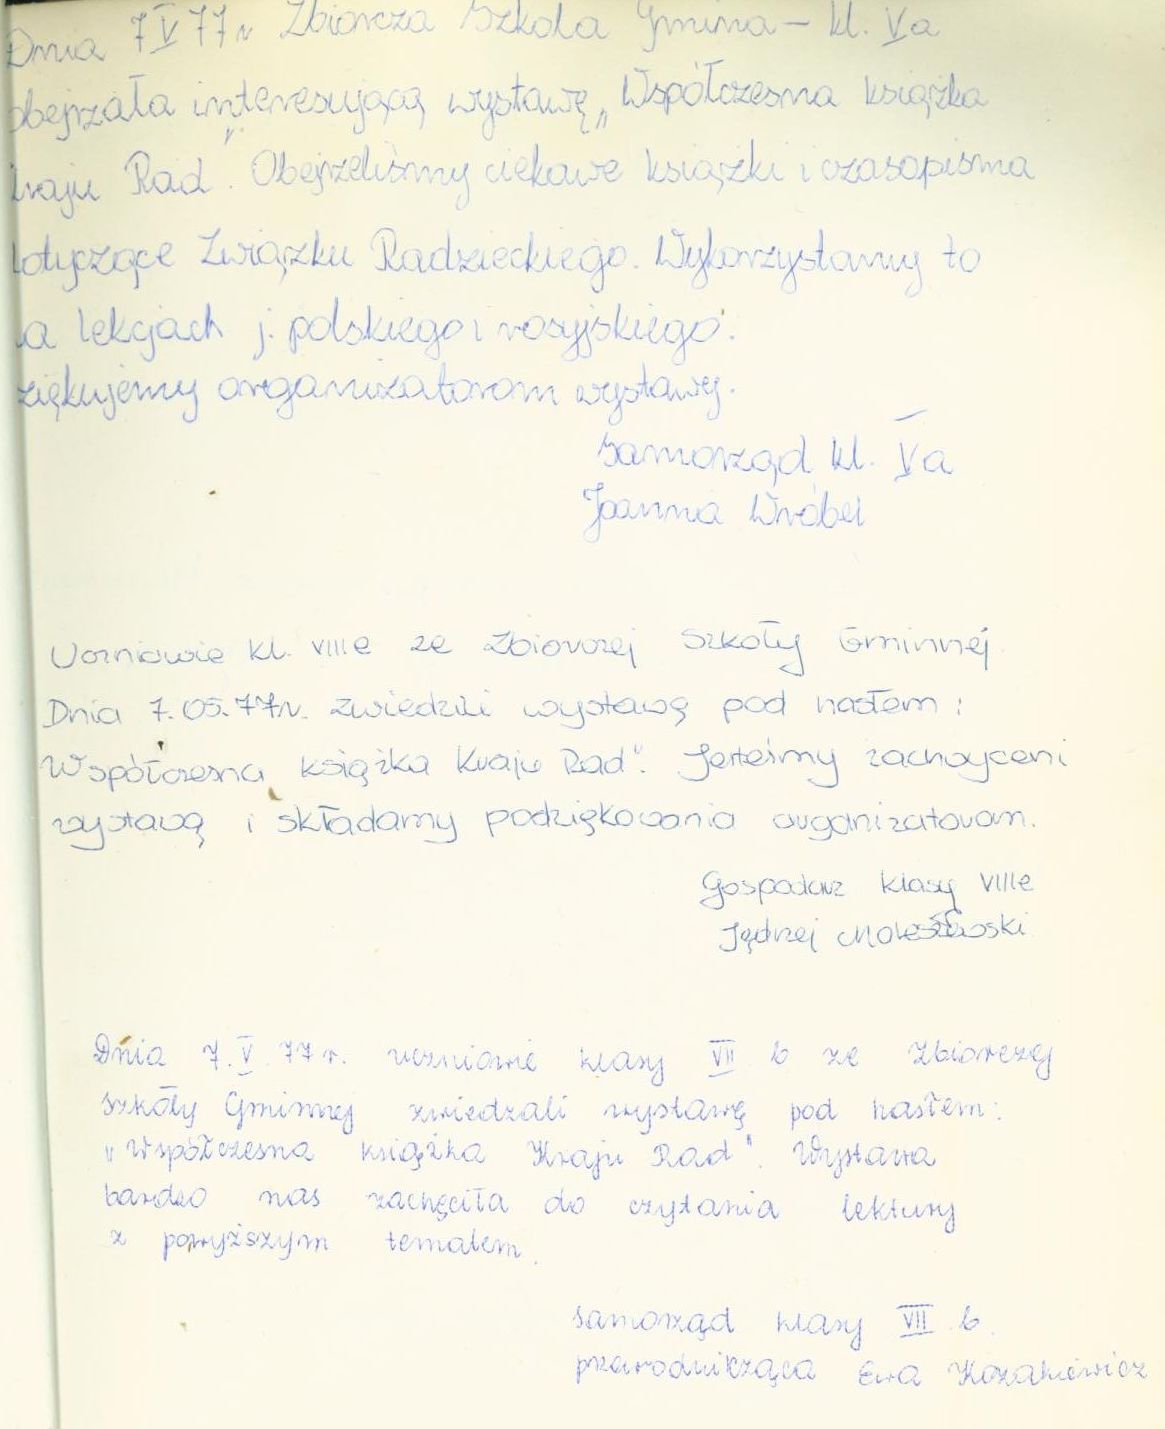 Dnia 7 V 77 r Zbiorcza Szkoła Gminna – kl. Va
obejrzała interesującą wystawę „Współczesna książka
kraju Rad". Obejrzeliśmy ciekawe książki i czasopisma
dotyczące Związku Radzieckiego. Wykorzystamy to
na lekcjach j. polskiego i rosyjskiego.
ziękujemy organizatorom wystawy.
Samorząd kl. Va
Joanna Wróbel
Uczniowie kl. VIIIe ze Zbiorczej Szkoły Gminnej
Dnia 7.05.77r. zwiedzili wystawę pod hasłem:
Współczesna książka Kraju Rad". Jesteśmy zachwyceni
wystawą i składamy podziękowania organizatorom.
Gospodarz klasy VIIIe
Jędrzej
Dnia 7.V.77 r. uczniowie klasy VII b ze Zbiorczej
Szkoły Gminnej zwiedzali wystawę pod hasłem:
„Współczesna książka Kraju Rad". Wystawa
bardzo nas zachęciła do czytania lektury
z powyższym tematem.
Samorząd klasy VII b.
przewodnicząca Ewa Kozakiewicz